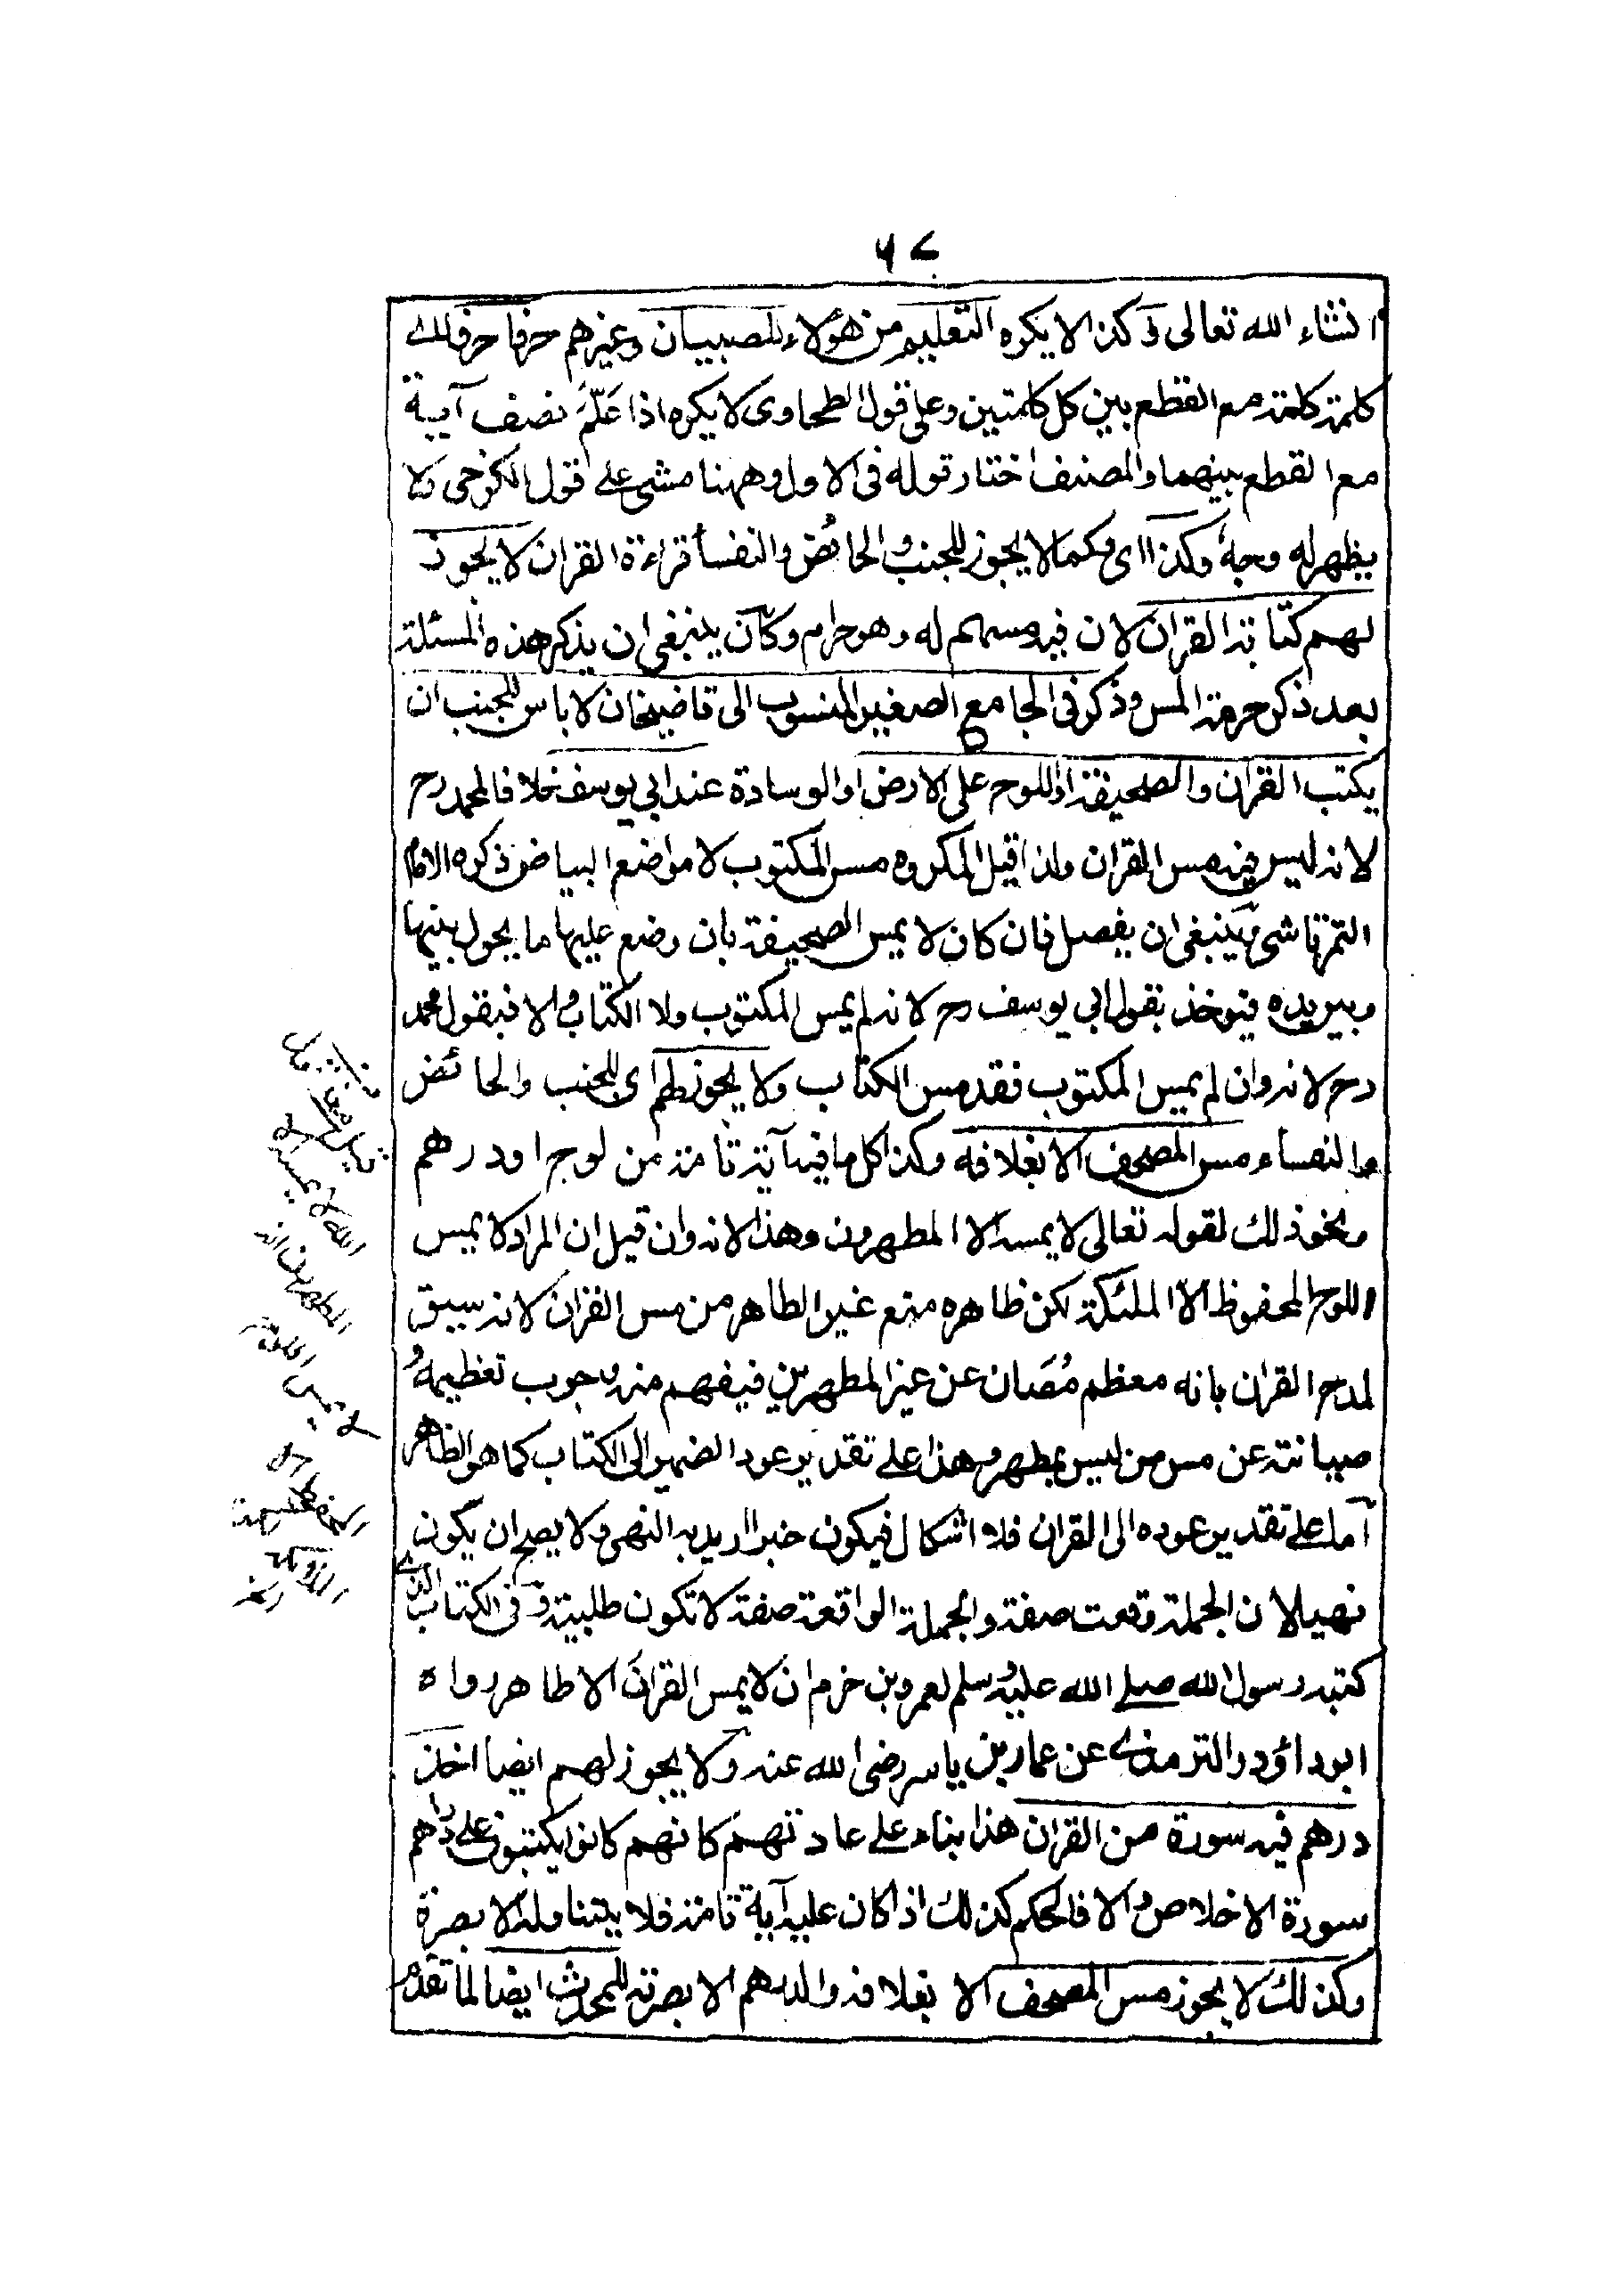 ٦٧
انشاء الله تعالى وكذا لا يكره التعليم من هؤلاء للصبيان وغيرهم حرفا حرفا اى
كلمة كلمة مع القطع بين كل كلمتين وعلى قول الطحاوى لا يكره اذا علّم نصف آية
مع القطع بينهما والمصنف اختار قوله فى الاول وههنا مشى على قول الكرخى ولا
يظهر له وجهٌ وكذا اى وكما لا يجوز للجنب والحائض والنفسأ قراءة القران لا يجوز
لهم كتابة القران لان فيه مسهم له وهو حرام وكان ينبغى ان يذكر هذه المسئلة
بعد ذكر حرمة المس وذكر فى الجامع الصغير المنسوب الى قاضيخان لا باس للجنب ان
يكتب القران والصحيفة او اللوح على الارض او الوسادة عند ابي يوسف خلافا لمحمد رح
لانه ليس فيه مس القران ولذا قيل المكروه مس المكتوب لا مواضع البياض ذكره الامام
التمرتاشى وينبغى ان يفصل فان كان لا يمس الصحيفة بان وضع عليها ما يحول بينها
وبين يده فيوخذ بقول ابي يوسف رح لانه لم يمس المكتوب ولا الكتاب والا فبقول محمد
رح لانه وان لم يمس المكتوب فقد مس الكتاب ولا يجوز لهم اى للجنب والحائض
والنفساء مس المصحف الا بغلافه وكذا كل ما فيه آية تامة من لوح او درهم
ونحو ذلك لقوله تعالى لا يمسه الا المطهرون وهذا لانه وان قيل ان المراد لا يمس
اللوح المحفوظ الا الملئكة لكن ظاهره منع غير الطاهر من مس القران لانه سيق
لمدح القران بانه معظم مُصَان عن غير المطهرين فيفهم منه وجوب تعظيمه و
صيانته عن مس من ليس بمطهر وهذا على تقدير عود الضمير الى الكتاب كما هو الظاهر
اما على تقدير عوده الى القران فلا اشكال فيكون خبرا اريد به النهى ولا يصح ان يكون
نهيا لان الجملة وقعت صفة والجملة الواقعة صفة لا تكون طلبية وفى الكتاب الذى
كتبه رسول الله صلى الله عليه وسلم لعمرو بن حزم ان لا يمس القران الا طاهر رواه
ابو داؤد والترمذى عن عمار بن ياسر رضى الله عنه ولا يجوز لهم ايضا اخذ
درهم فيه سورة من القران هذا بناء على عادتهم كانهم كانوا يكتبون على دراهم
سورة الاخلاص والا فالحكم كذلك اذا كان عليه آية تامة فلا يتناوله الا بصرة
وكذلك لا يجوز مس المصحف الا بغلافه والدرهم الا بصرته للمحدث ايضا لما تقدم